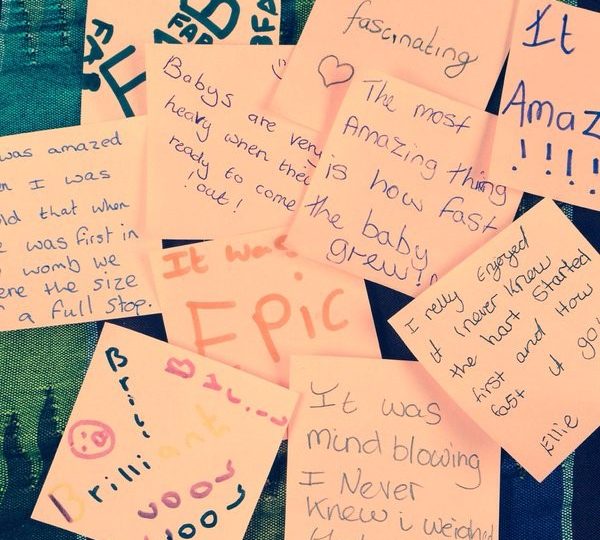 FAB
FAB
BFA
FA
fascinating
It
Amaz
!!!!
Babys are very
heavy when their
ready to come
!out!
The most
Amazing thing
is how fast
the baby
grew!!
was amazed
n I was
old that when
e was first in
womb we
ere the size
a full stop.
It was
Epic
I relly Enjoyed
it I never knew
the hart Started
first and How
fast it go
Ellie
Brilli
Brilliant
It was
mind blowing
I Never
Knew i weighed